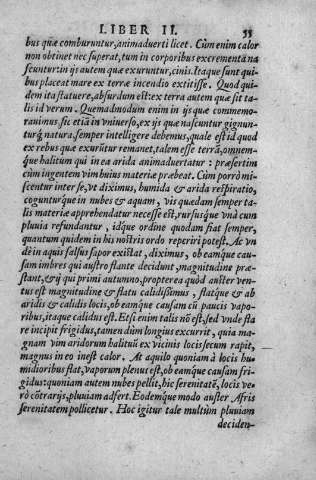 LIBER II. 55
bus quæ comburuntur, animaduerti licet. Cùm enim calor
non obtinet nec superat, tum in corporibus excrementa na
scuntur: in ijs autem quæ exuruntur, cinis. Itaque sunt qui-
bus placeat mare ex terræ incendio extitisse. Quod qui-
dem ita statuere, absurdum est: ex terra autem quæ sit ta-
lis id verum. Quemadmodum enim in ijs quæ commemo-
rauimus, sic etiã in vniuerso, ex ijs quæ nascuntur gignun-
turq́; natura, semper intelligere debemus, quale est id quod
ex rebus quæ exurũtur remanet, talem esse terrã, omnem-
que halitum qui in ea arida animaduertatur: præsertim
cùm ingentem vim huius materiæ præbeat. Cùm porrò mi-
scentur inter se, vt diximus, humida & arida respiratio,
cogunturque in nubes & aquam, vis quædam semper ta-
lis materiæ apprehendatur necesse est, rursusque vnà cum
pluuia refundantur, idque ordine quodam fiat semper,
quantum quidem in his nostris ordo reperiri potest. Ac vn
de in aquis salsus sapor existat, diximus, ob eamque cau-
sam imbres qui austro flante decidunt, magnitudine præ-
stant, & ij qui primi autumno, propterea quòd auster ven-
tus est magnitudine & flatu calidissimus, flatque & ab
aridis & calidis locis, ob eamque causam cũ paucis vapo-
ribus, itaque calidus est. Etsi enim talis nõ est, sed vnde fla
re incipit frigidus, tamen dùm longius excurrit, quia ma-
gnam vim aridorum halituũ ex vicinis locis secum rapit,
magnus in eo inest calor. At aquilo quoniam à locis hu-
midioribus flat, vaporum plenus est, ob eamque causam fri-
gidus: quoniam autem nubes pellit, hîc serenitatẽ, locis ve-
rò cõtrarijs, pluuiam adfert. Eodemque modo auster Afris
serenitatem pollicetur. Hoc igitur tale multùm pluuiam
deciden-